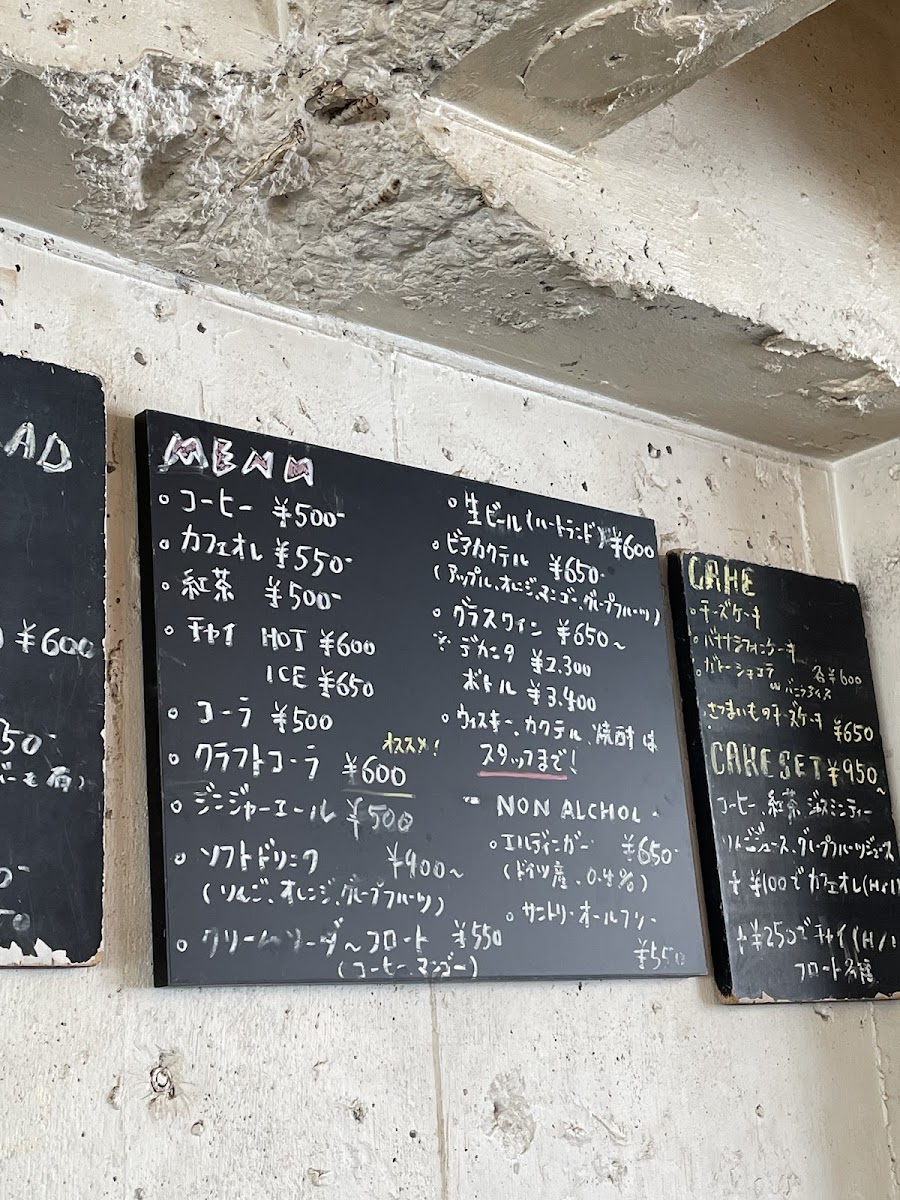 AD
¥600
50-
MENU
○コーヒー ¥500-
○カフェオレ ¥550-
○紅茶 ¥500-
○チャイ HOT ¥600
ICE ¥650
○コーラ ¥500
オススメ!
○クラフトコーラ ¥600
○ジンジャーエール ¥500
○ソフトドリンク ¥400~
(りんご、オレンジ、グレープフルーツ)
○クリームソーダ~フロート ¥550
(コーヒー、マンゴー)
○生ビール(ハートランド)¥600
○ビアカクテル ¥650-
(アップル、オレンジ、マンゴー、グレープフルーツ)
○グラスワイン ¥650~
※デカンタ ¥2.300
ボトル ¥3.400
○ウィスキー、カクテル、焼酎は
スタッフまで!
NON ALCHOL
○エルディンガー ¥650-
(ドイツ産、0.4%)
○サントリーオールフリー
¥550
CAKE
○チーズケーキ
○バナナシフォンケーキ
○ガトーショコラ 各¥600
w バニラアイス
さつまいものチーズケーキ ¥650
CAKE SET ¥950~
コーヒー、紅茶、ジャスミンティー
りんごジュース、グレープフルーツジュース
+¥100でカフェオレ(H/I
+¥250でチャイ(H/I
フロート各種